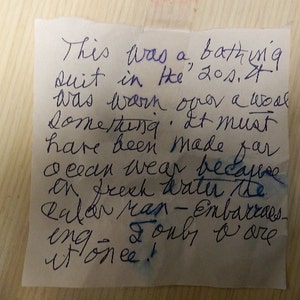 This was a bathing
suit in the '20s. It
was worn over a wool
something. It must
have been made for
ocean wear because
in fresh water the
color ran - Embarrass-
ing - I only wore
it once!